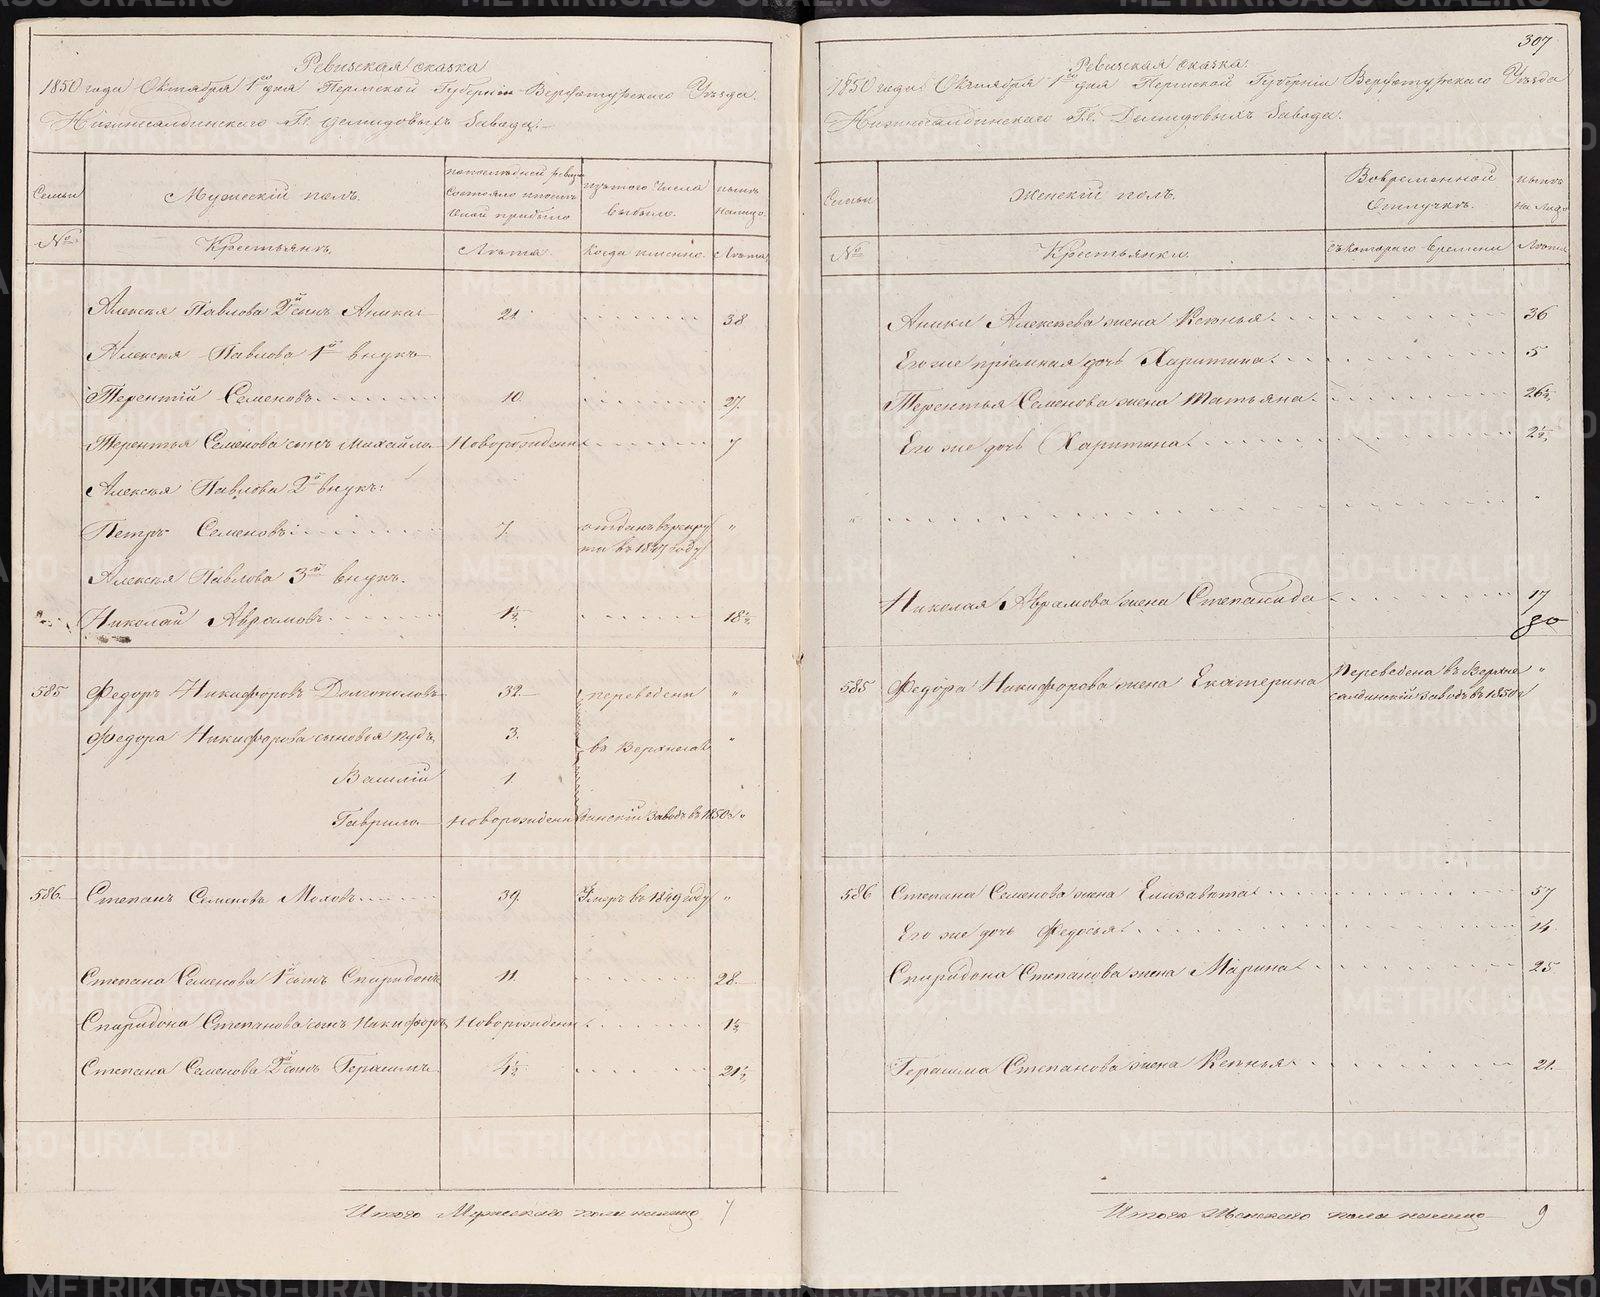 Ревизская сказка
1850 года Октября 1го дня Пермской Губерніи Верхотурскаго Уѣзда
Нижнесалдинскаго Г.г. Демидовыхъ Завода.
Семьи
Мужескій полъ.
по последней ревизіи состояло и послѣ оной прибыло
изъ того числа выбыло.
нынѣ на лицо.
№
Крестьянъ.
Лѣта.
Когда именно.
Лѣта
Алексѣя Павлова 2й сынъ Аника 21. 38
Алексѣя Павлова 1й внукъ
Терентій Семеновъ 10. 27.
Терентья Семенова сынъ Михайло Новорожденн. 7
Алексѣя Павлова 2й внукъ:
Петръ Семеновъ: 7. отданъ в рекруты в 1847 году "
Алексѣя Павлова 3й внукъ.
Николай Аврамовъ 1½ 18½
585 Федоръ Никифоровъ Долгополовъ 32. переведены "
Федора Никифорова сыновья 3. въ Верхнесал "
Василій 1 "
Гаврило Новорожденн. динскій заводъ въ 1850 г. "
586. Степанъ Семеновъ Моховъ 39. Умеръ въ 1849 году "
Степана Семенова 1й сынъ Спиридонъ 11. 28.
Спиридона Степанова сынъ Никифоръ Новорожденн. 1½
Степана Семенова 2й сынъ Герасимъ 4½ 21½
Итого Мужескаго пола налицо 7
307
Ревизская сказка.
1850 года Октября 1го дня Пермской Губерніи Верхотурскаго Уѣзда
Нижнесалдинскаго Г.г. Демидовыхъ Завода.
Семьи
Женскій полъ.
Во временной отлучкѣ.
нынѣ на лицо
№
Крестьянки.
Съ котораго времени
Лѣта
Аники Алексѣева жена Ксенья 36
Его же пріемная дочь Харитина 5
Терентья Семенова жена Татьяна 26½
Его же дочь Харитина 2½
" "
Николая Аврамова жена Степанида 17
80
585 Федора Никифорова жена Екатерина Переведена въ Верхне "
салдинскій заводъ въ 1850 г
586 Степана Семенова жена Елизавета 57
Его же дочь Федосья 14
Спиридона Степанова жена Марина 25
Герасима Степанова жена Ксенья 21.
Итого Женскаго пола налицо 9
METRIKI.GASO-URAL.RU